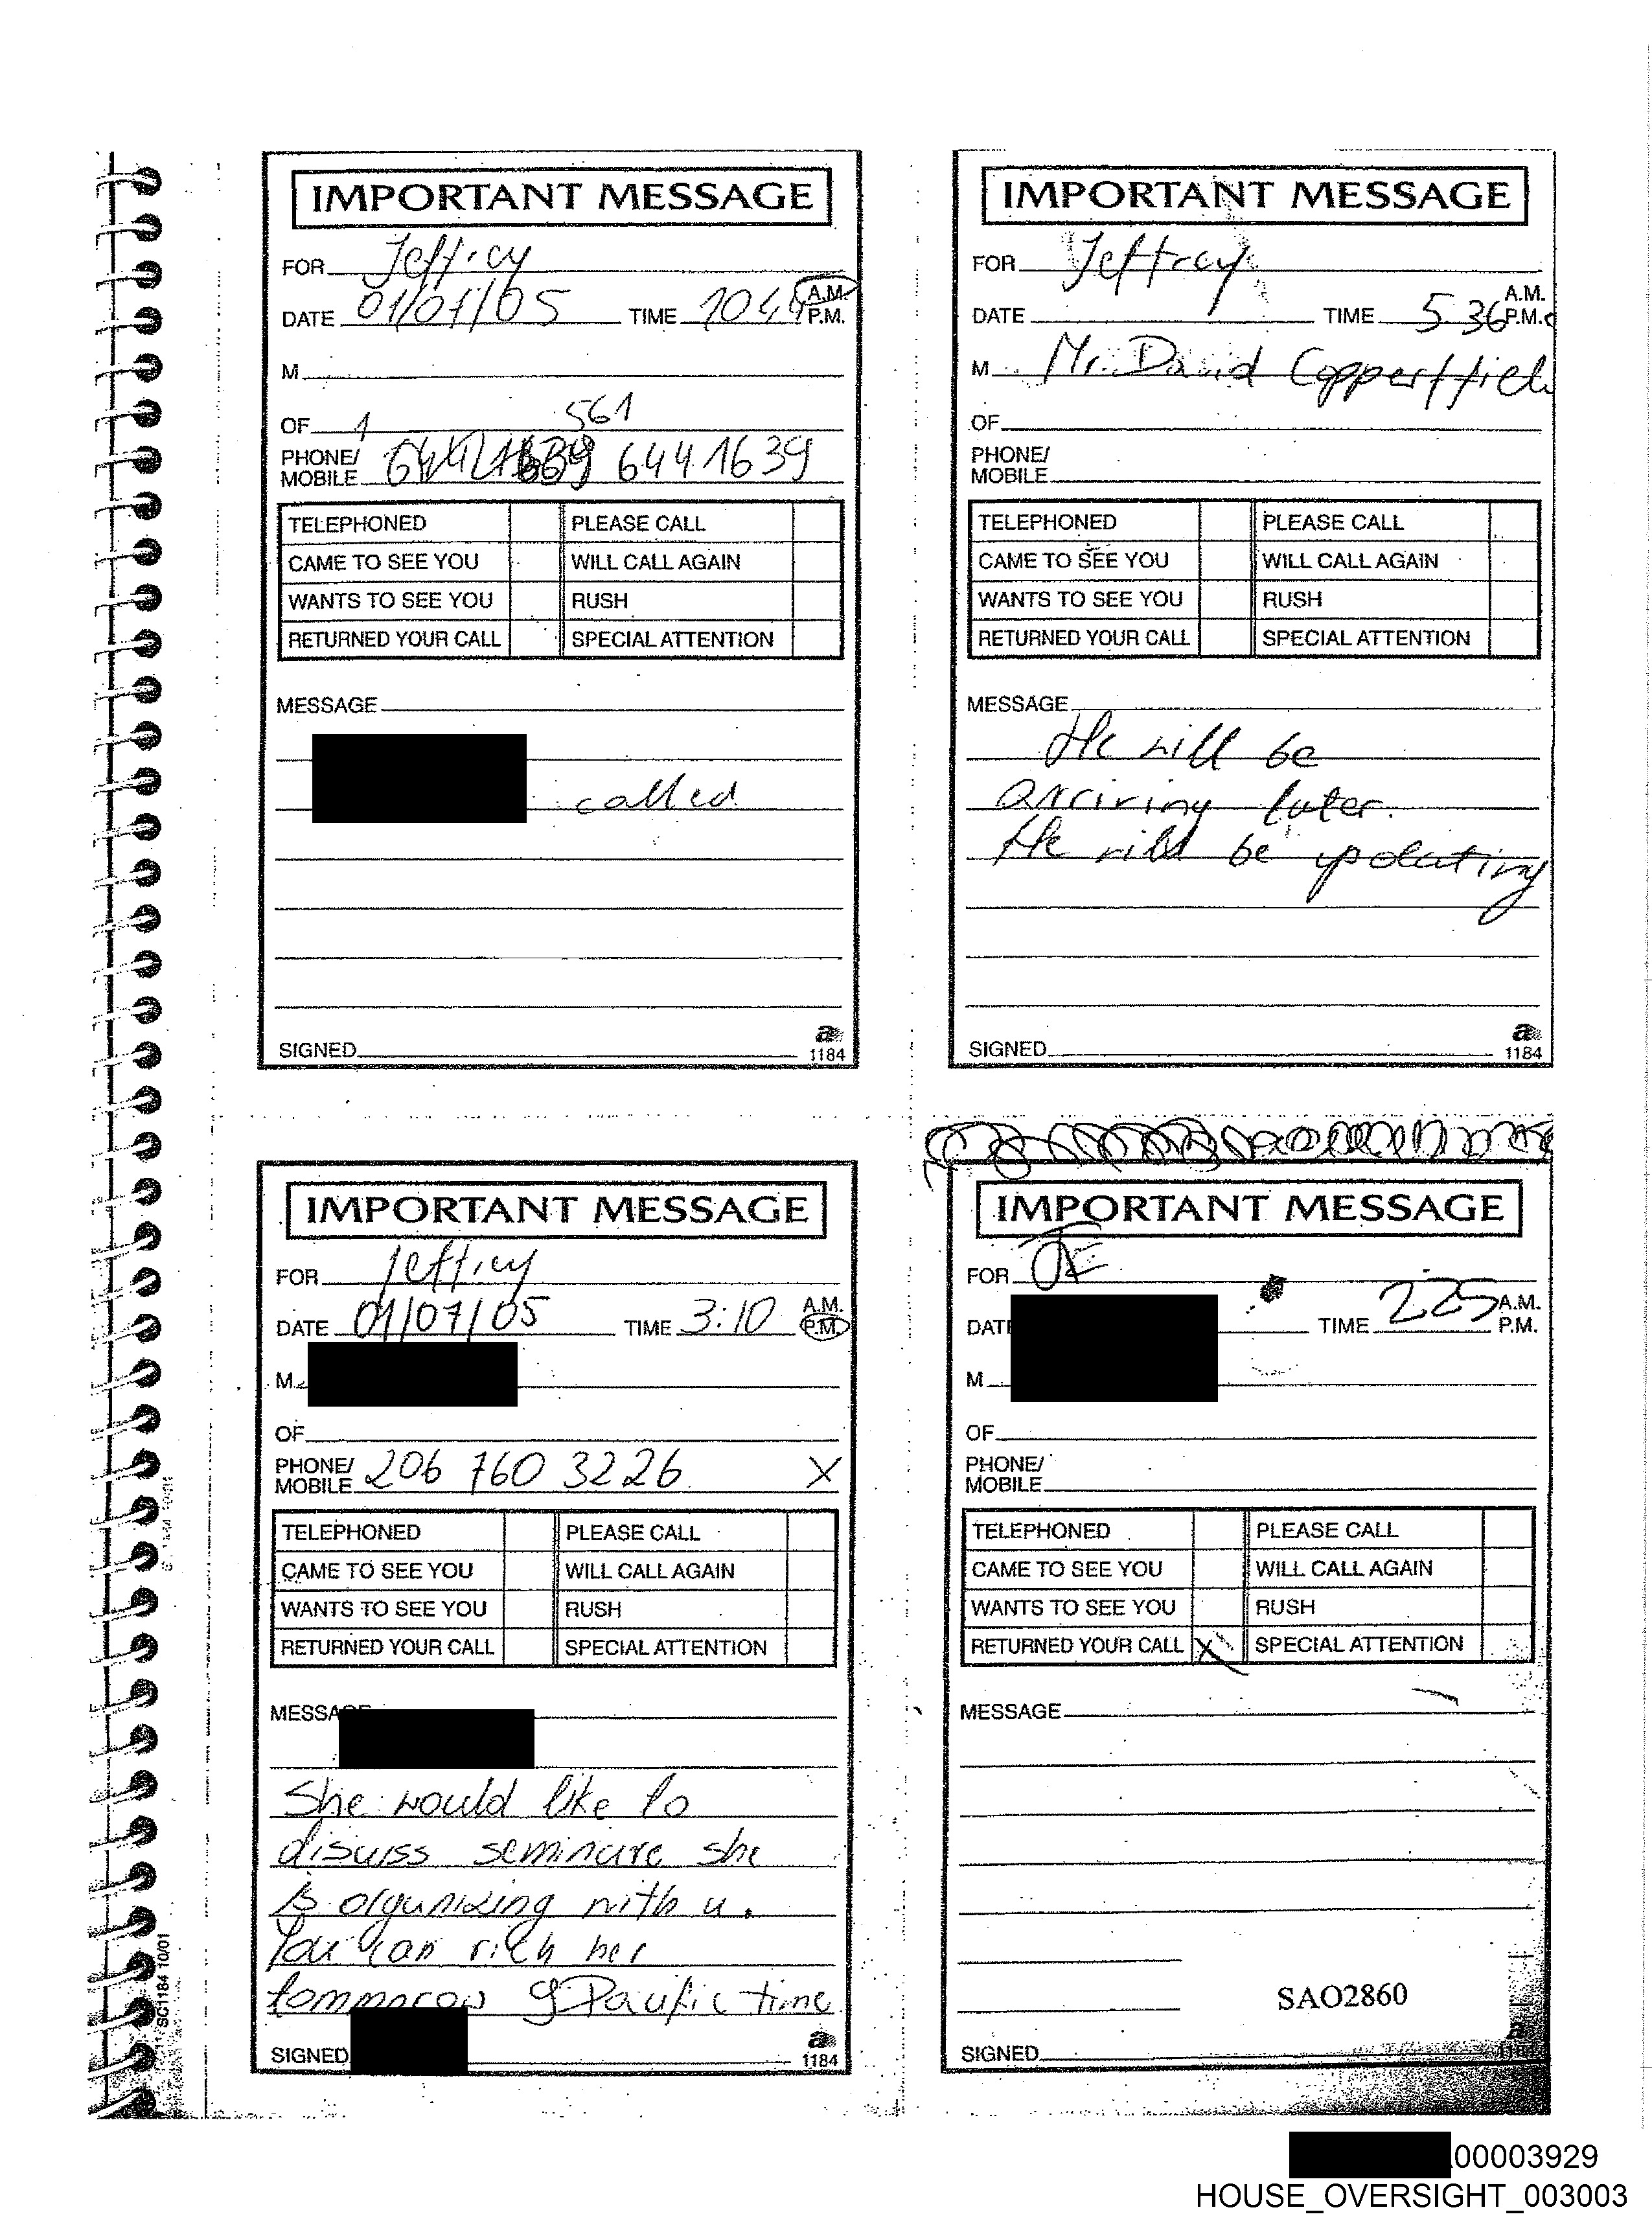 IMPORTANT MESSAGE
FOR Jeffrey
DATE 01/07/05 TIME 10:44 A.M. P.M.
M
OF 1 561
PHONE/ MOBILE 6441639
TELEPHONED PLEASE CALL
CAME TO SEE YOU WILL CALL AGAIN
WANTS TO SEE YOU RUSH
RETURNED YOUR CALL SPECIAL ATTENTION
MESSAGE
called
SIGNED
a
1184
IMPORTANT MESSAGE
FOR Jeffrey
DATE TIME 5.36 A.M. P.M.
M Mr. David Copperffield
OF
PHONE/ MOBILE
TELEPHONED PLEASE CALL
CAME TO SEE YOU WILL CALL AGAIN
WANTS TO SEE YOU RUSH
RETURNED YOUR CALL SPECIAL ATTENTION
MESSAGE
He will be
arriving later.
He will be updating
SIGNED
a
1184
IMPORTANT MESSAGE
FOR Jeffrey
DATE 01/07/05 TIME 3:10 A.M. P.M.
M
OF
PHONE/ MOBILE 206 760 3226 X
TELEPHONED PLEASE CALL
CAME TO SEE YOU WILL CALL AGAIN
WANTS TO SEE YOU RUSH
RETURNED YOUR CALL SPECIAL ATTENTION
MESSAGE
She would like to
discuss seminare she
is organizing with u.
You can rich her
tommorow 9 Pacific time
SIGNED
a
1184
SC1184 10/01
IMPORTANT MESSAGE
FOR JE
DATE TIME 2:25 A.M. P.M.
M
OF
PHONE/ MOBILE
TELEPHONED PLEASE CALL
CAME TO SEE YOU WILL CALL AGAIN
WANTS TO SEE YOU RUSH
RETURNED YOUR CALL X SPECIAL ATTENTION
MESSAGE
SAO2860
SIGNED
1184
00003929
HOUSE_OVERSIGHT_003003